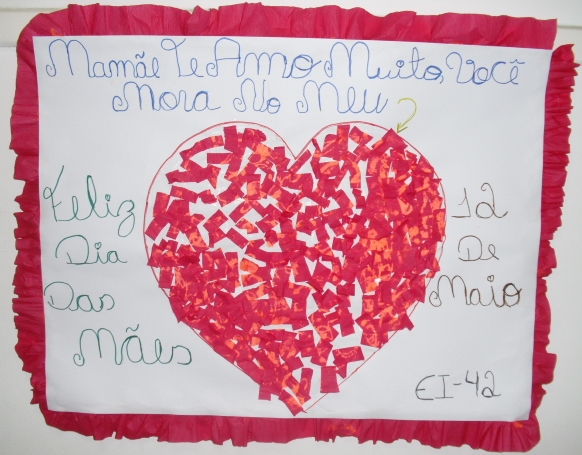 Mamãe Te Amo Muito, Você
Mora No Meu
Feliz
Dia
Das
Mães
12
De
Maio
EI-42